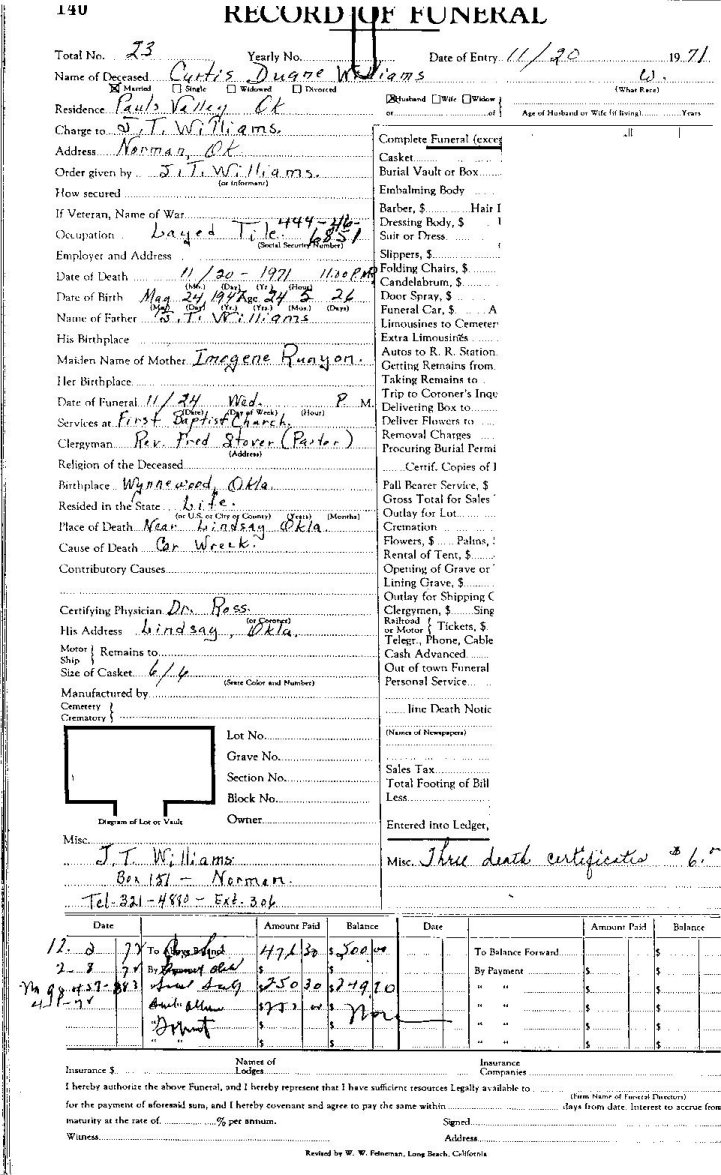 140
RECORD OF FUNERAL
Total No. 23 Yearly No. Date of Entry 11/20 1971
Name of Deceased Curtis Duane Williams W.
Married Single Widowed Divorced (What Race)
Residence Pauls Valley Ok Husband Wife Widow
or of Age of Husband or Wife (if living) Years
Charge to J. T. Williams.
Address Norman, Ok
Order given by J. T. Williams.
(or Informant)
How secured
If Veteran, Name of War
Occupation Layed Tile. 444-46-6851
(Social Security Number)
Employer and Address
Date of Death 11/20-1971 11:00 P.M.
(Mo.) (Day) (Yr.) (Hour)
Date of Birth May 24, 1947 Age 24 5 26
(Mo.) (Day) (Yr.) (Yrs.) (Mos.) (Days)
Name of Father J. T. Williams
His Birthplace
Maiden Name of Mother Imogene Runyon.
Her Birthplace
Date of Funeral 11/24 Wed. P. M.
(Date) (Day of Week) (Hour)
Services at First Baptist Church.
Clergyman Rev. Fred Stover (Pastor)
(Address)
Religion of the Deceased
Birthplace Wynnewood, Okla.
Resided in the State Life.
(or U.S. or City or County) (Years) (Months)
Place of Death Near Lindsay Okla.
Cause of Death Car Wreck.
Contributory Causes
Certifying Physician Dr. Ross.
(or Coroner)
His Address Lindsay, Okla.
Motor
Ship Remains to
Size of Casket 6/6
(State Color and Number)
Manufactured by
Cemetery
Crematory
Lot No.
Grave No.
Section No.
Block No.
Owner
Diagram of Lot or Vault
Misc.
J. T. Williams
Box 151 - Norman.
Tel-321-4880 - Ext. 306
Complete Funeral (excep
Casket
Burial Vault or Box
Embalming Body
Barber, $ Hair
Dressing Body, $
Suit or Dress
Slippers, $
Folding Chairs, $
Candelabrum, $
Door Spray, $
Funeral Car, $ A
Limousines to Cemeter
Extra Limousines
Autos to R. R. Station
Getting Remains from
Taking Remains to
Trip to Coroner's Inqu
Delivering Box to
Deliver Flowers to
Removal Charges
Procuring Burial Permi
Certif. Copies of
Pall Bearer Service, $
Gross Total for Sales
Outlay for Lot
Cremation
Flowers, $ Palms,
Rental of Tent, $
Opening of Grave or
Lining Grave, $
Outlay for Shipping C
Clergymen, $ Sing
Railroad
or Motor Tickets, $
Telegr., Phone, Cable
Cash Advanced
Out of town Funeral
Personal Service
line Death Notic
(Names of Newspapers)
Sales Tax
Total Footing of Bill
Less
Entered into Ledger,
Misc. Three death certificates $6.00
Date Amount Paid Balance Date Amount Paid Balance
To Balance Forward
By Payment
Insurance $ Names of Lodges Insurance Companies
I hereby authorize the above Funeral, and I hereby represent that I have sufficient resources Legally available to
(Firm Name of Funeral Directors)
for the payment of aforesaid sum, and I hereby covenant and agree to pay the same within days from date. Interest to accrue from
maturity at the rate of % per annum. Signed
Witness Address
Revised by W. W. Feineman, Long Beach, California